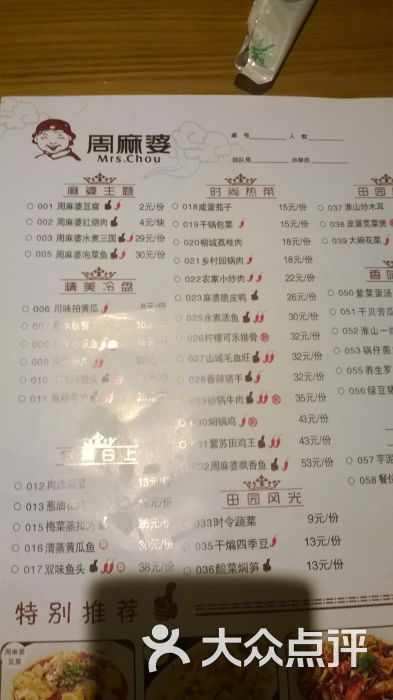 周麻婆
Mrs.Chou
桌 号 人 数
排队号 点单员
麻婆主题
001 周麻婆豆腐 2元/份
002 周麻婆红烧肉 4元/块
003 周麻婆水煮三国 29元/份
005 周麻婆泡菜鱼 30元/份
精美冷盘
006 川味拍黄瓜 8元/份
007
008
009
010
011
蒸蒸日上
012 13元/份
013 葱油
015 梅菜蒸扣
016 清蒸黄瓜鱼 30元/份
017 双味鱼头 38元/份
时尚热菜
018 咸蛋茄子 15元/份
019 干锅包菜 15元/份
020 榕城荔枝肉 18元/份
021 乡村回锅肉 18元/份
022 农家小炒肉 22元/份
023 麻婆脆皮鸭 26元/份
025 水煮活鱼 30元/份
026 柠檬可乐排骨 32元/份
027 山城毛血旺 32元/份
028 香辣猪手 32元/份
029 砂锅牛肉 35元/份
030 焖锅鸡 43元/份
031 紫苏田鸡王 43元/份
032 周麻婆飘香鱼 53元/份
田园风光
033 时令蔬菜 9元/份
035 干煸四季豆 13元/份
036 酸菜焖笋 13元/份
田园
037 淮山炒木耳
038 皮蛋苋菜煲
039 大碗花菜
050 紫菜蛋汤
051 干贝苦瓜
052 淮山一
053 锅仔菌
055 养生罗
056 绿豆
057 芋泥
058 餐
特别推荐
周麻婆
豆腐
大众点评